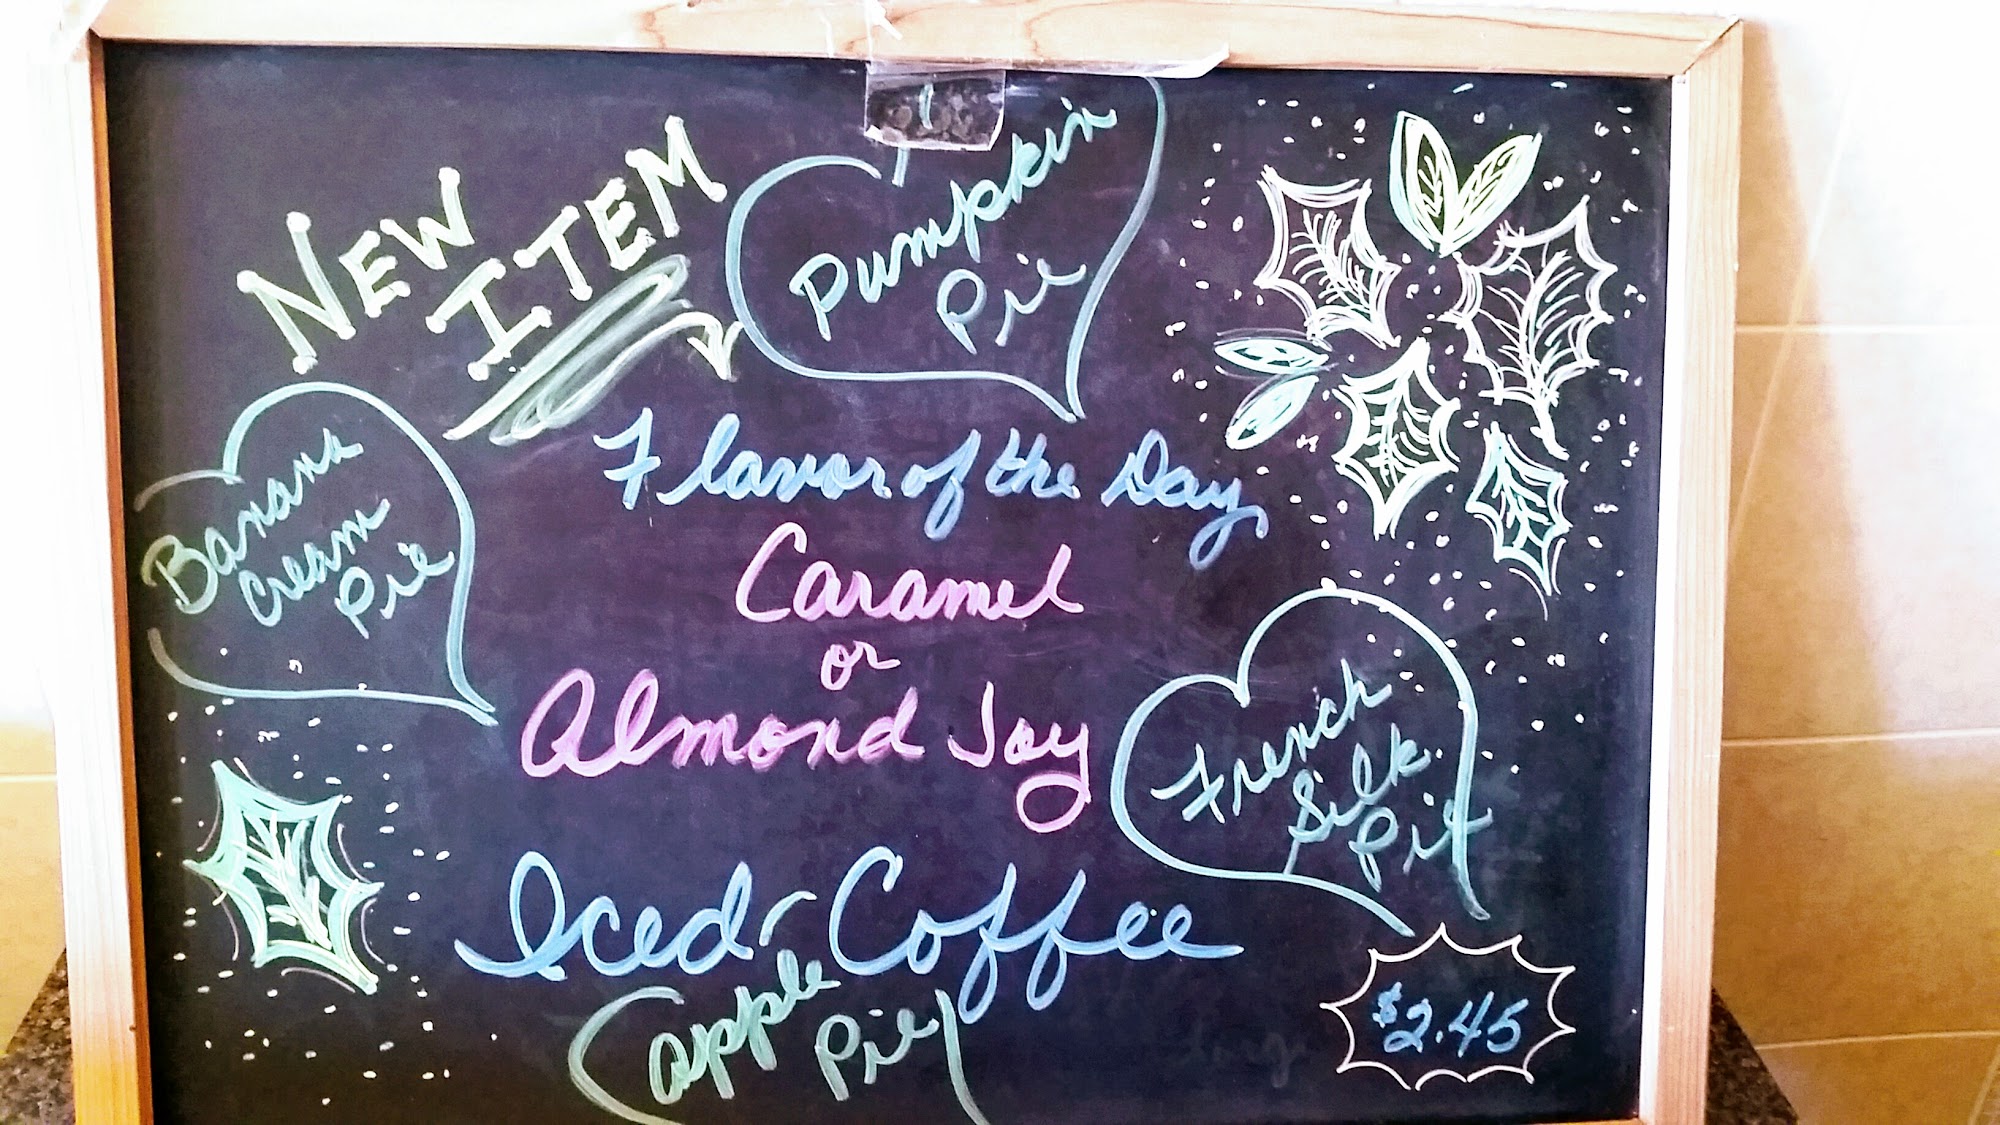 NEW
ITEM
Pumpkin
Pie
Banana
Cream
Pie
Flavor of the Day
Caramel
or
Almond Joy
French
Silk
Pie
Iced Coffee
Apple
Pie
$2.45